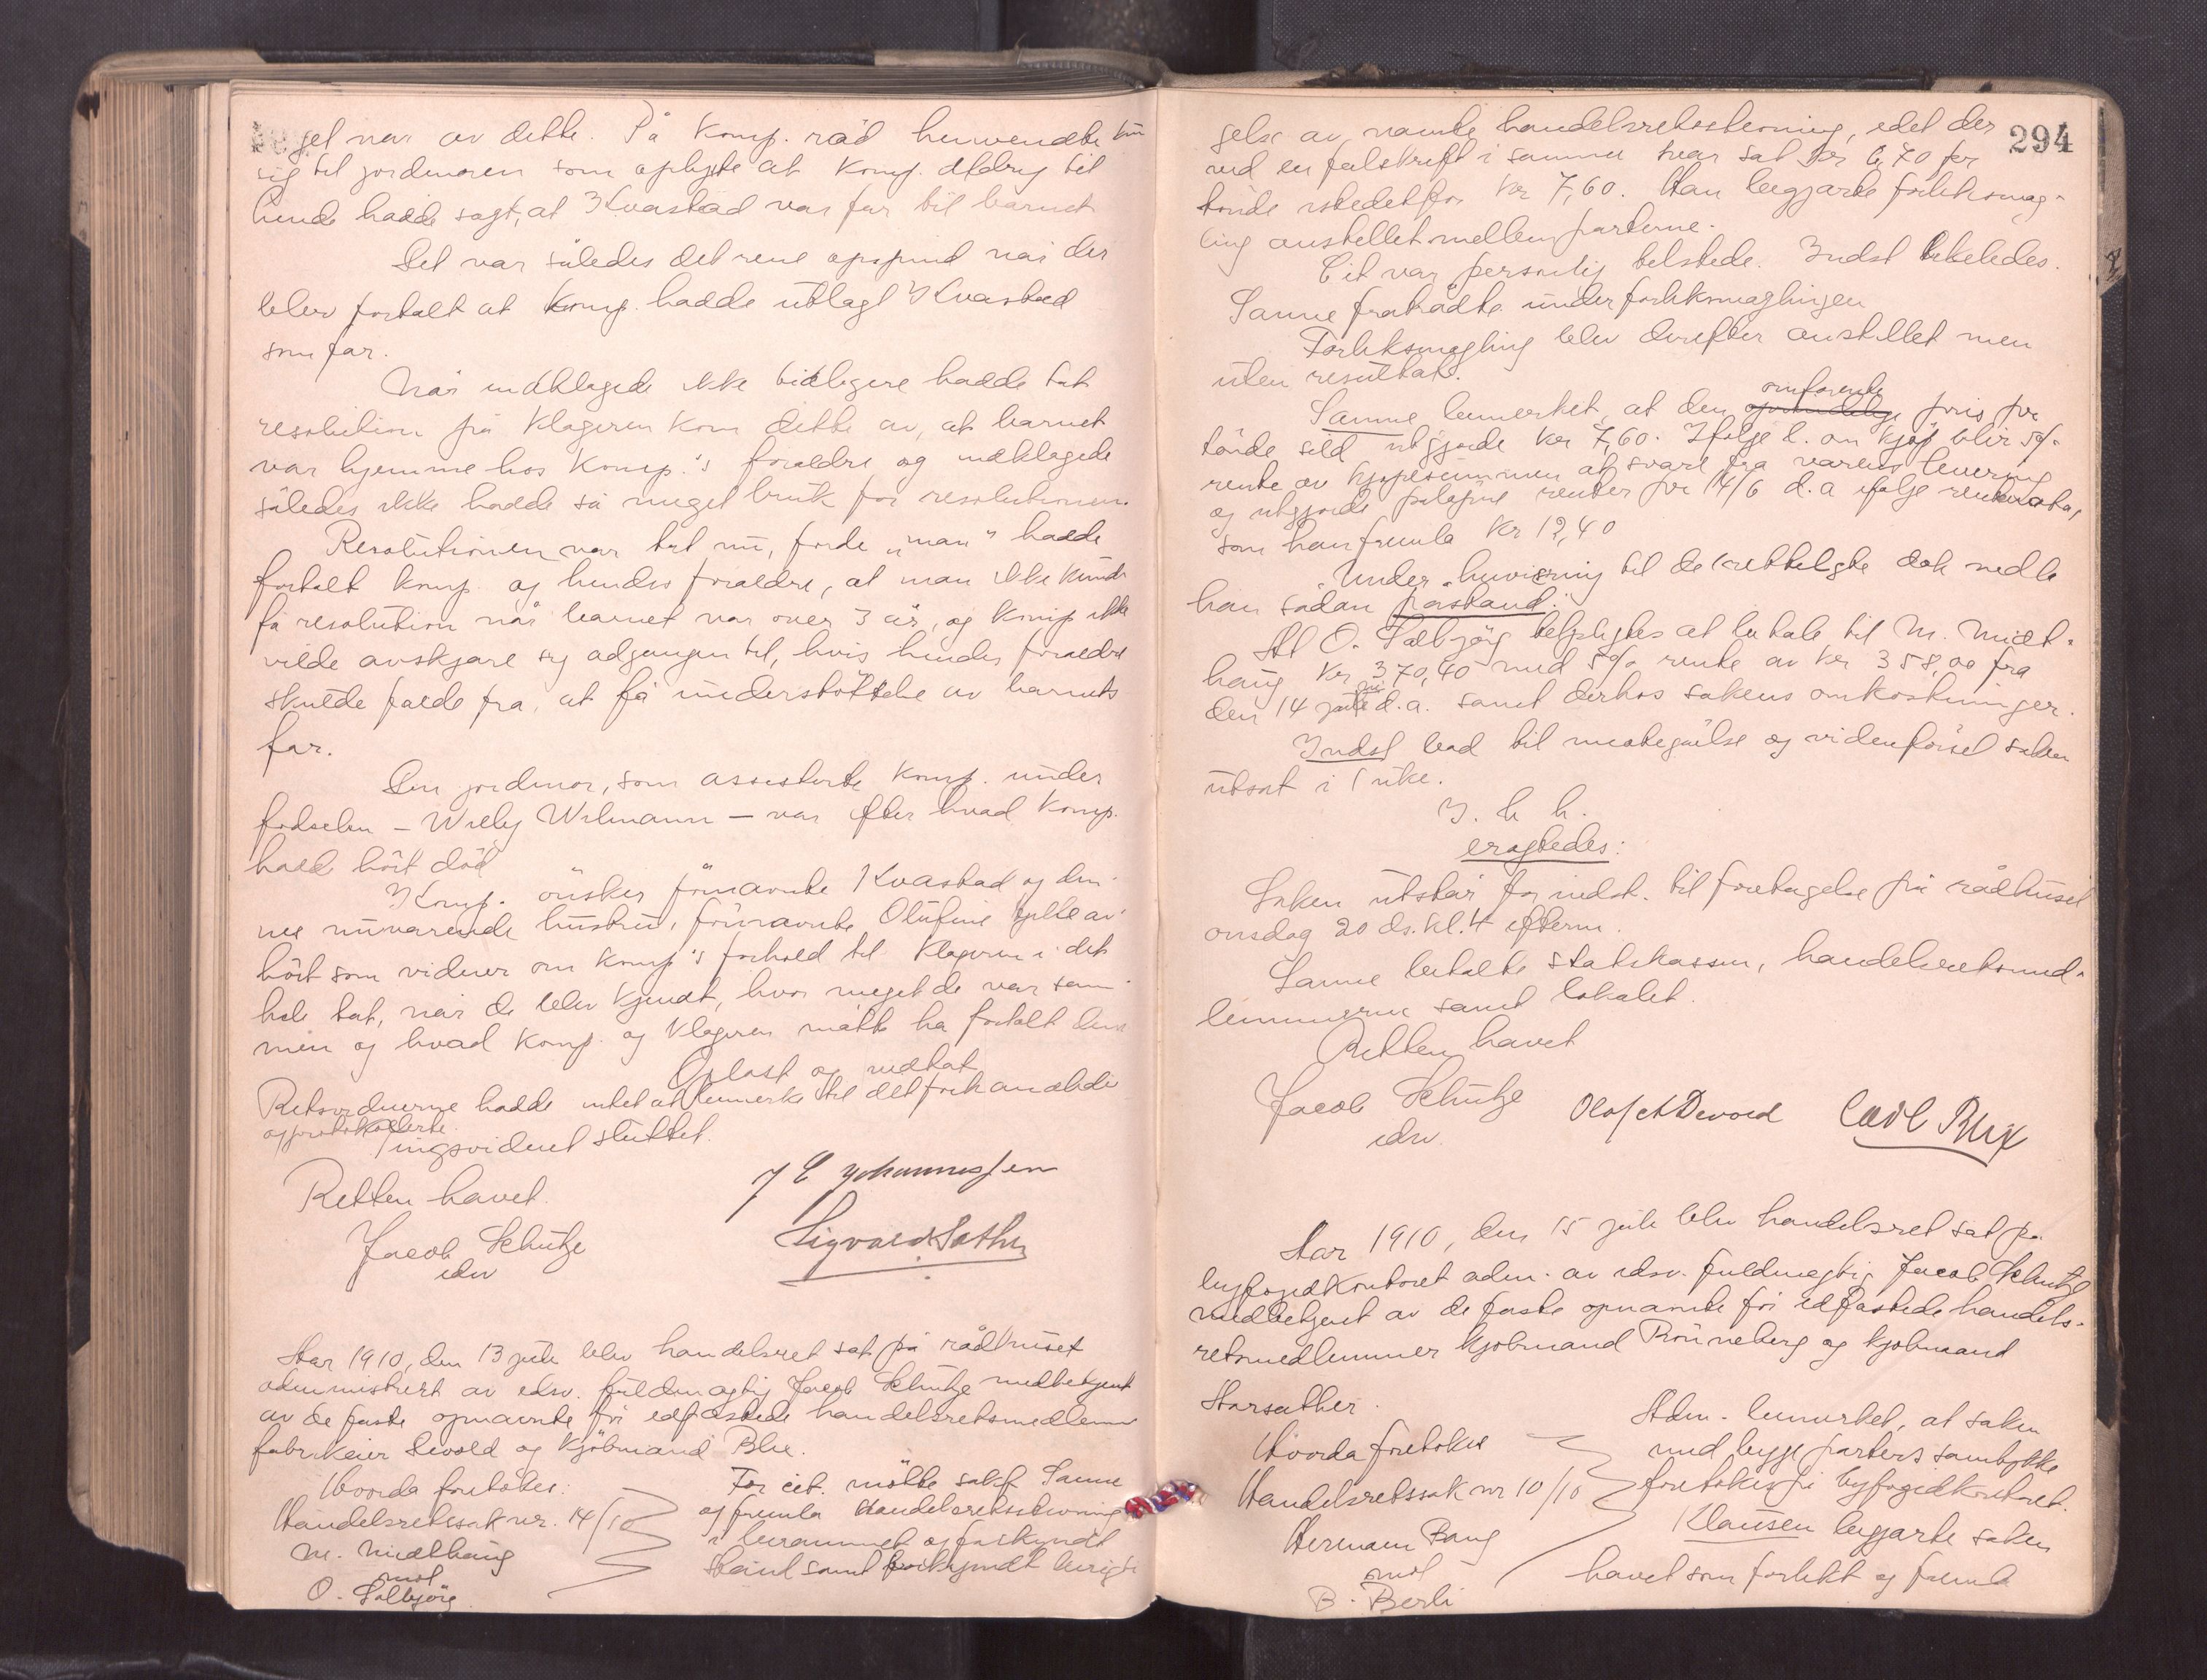 get var av dette. På komp. råd henvendte hun
sig til jordmoren som oplyste at komp. aldrig til
hende hadde sagt, at Kvastad var far til barnet
Det var således det rene opspind når der
blev fortalt at komp. hadde utlagt Kvastad
som far.
Når indklagede ikke tidligere hadde tat
resolution på klageren kom dette av, at barnet
var hjemme hos komp.'s forældre og indklagede
således ikke hadde så meget bruk for resolutionen.
Resolutionen var tat nu, fordi "man" hadde
fortalt komp. og hendes forældre, at man ikke kunde
få resolution når barnet var over 3 år, og komp ikke
vilde avskjære sig adgangen til, hvis hendes forældre
skulde falde fra, at få understøttelse av barnets
far.
Den jordmor, som assisterte komp. under
fødselen – Willy Wilmann – var efter hvad komp.
hadd hört död
Komp. önsker förnævnte Kvastad og den-
nes nuværende hustru, förnævnte Olufine
hört som vidner om komp's forhold til klageren i det
hele tat, når de blev kjendt, hvor meget de var sam-
men og hvad komp. og klageren måtte ha fortalt dem
Oplæst og vedtat
Retsvidnerne hadde intet at bemerke til det forhandlede
og protokollerte.
Tingsvidnet sluttet.
Retten hævet.
J E Johannessen
Jacob Schutze
edsv
Sigvald Sæther
Aar 1910, den 13 juli blev handelsret sat på rådhuset
administrert av edsv. fuldmægtig Jacob Schutze medbetjent
av de faste opnævnte för edfæstede handelsretsmedlemmer
fabrikeier Devold og kjöbmand Blix.
Hvorda foretokes:
Handelsretssak nr. 14/10
M. Midthaug
mot
O. Solbjörg
For cit. mötte sakf. Sanne
og fremla handelsretsstevning
i berammet og forkyndt
stand samt forkyndt berigti
294
gelse av nævnte handelsretsstevning, idet der
ved en feilskrift i samme var sat kr 6,70 per
tönde istedetfor kr 7,60. Han begjærte forliksmæg-
ling anstillet mellem parterne.
Cit var personlig tilstede. Indst likeledes.
Sanne fratrådte under forliksmæglingen
Forliksmægling blev derefter anstillet men
uten resultat.
omforente
Sanne bemerket, at den pris per
tönde sild utgjorde kr 7,60. Ifölge l. om kjöp blir 5%
rente av kjøpesummen at svare fra varens levering
og utgjorde påløpne renter per 14/6 d.a ifølge rentenota,
som han fremla kr 12,40
Under henvisning til de i rettelagte dok nedla
han sådan påstand:
At O. Solbjörg tilpligtes at betale til M. Midt-
haug kr 370,40 med 5% rente av kr 358,00 fra
den 14 juni d.a. samt derhos sakens omkostninger.
Indst bad til imøtegåelse og vidneförsel saken
utsat i 1 uke.
eragtedes:
Saken utstår for indst. til foretagelse på rådhuset
onsdag 20 ds. kl. 4 efterm.
Sanne betalte statskassen, handelsretsmed-
lemmerne samt lokalet.
Retten hævet
Jacob Schutze
edsv.
Olaf A Devold
Carl Blix
Aar 1910, den 15 juli blev handelsret sat på
byfogedkontoret adm. av edsv. fuldmægtig Jacob Schutze
medbetjent av de faste opnævnte för edfæstede handels-
retsmedlemmer kjöbmand Rönneberg og kjöbmand
Storsæther.
Hvorda foretokes
Handelsretssak nr 10/10
Herman Bang
mot
B. Berli
Adm. bemerket, at saken
med begge parters samtykke
foretokes på byfogedkontoret.
Klausen begjærte saken
hævet som forlikt og fremla